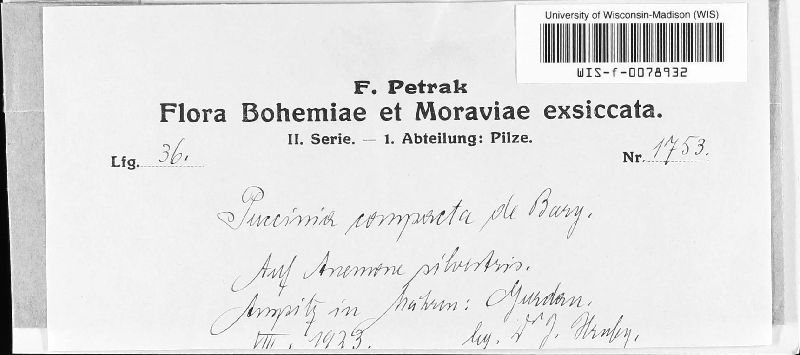 University of Wisconsin-Madison (WIS)
WIS-f-0078932
F. Petrak
Flora Bohemiae et Moraviae exsiccata.
II. Serie. — 1. Abteilung: Pilze.
Lfg. 36.
Nr. 1753.
Puccinia compacta de Bary.
Auf Anemone silvestris.
in Mähren:
VIII. 1923. leg. Dr J. Hruby.